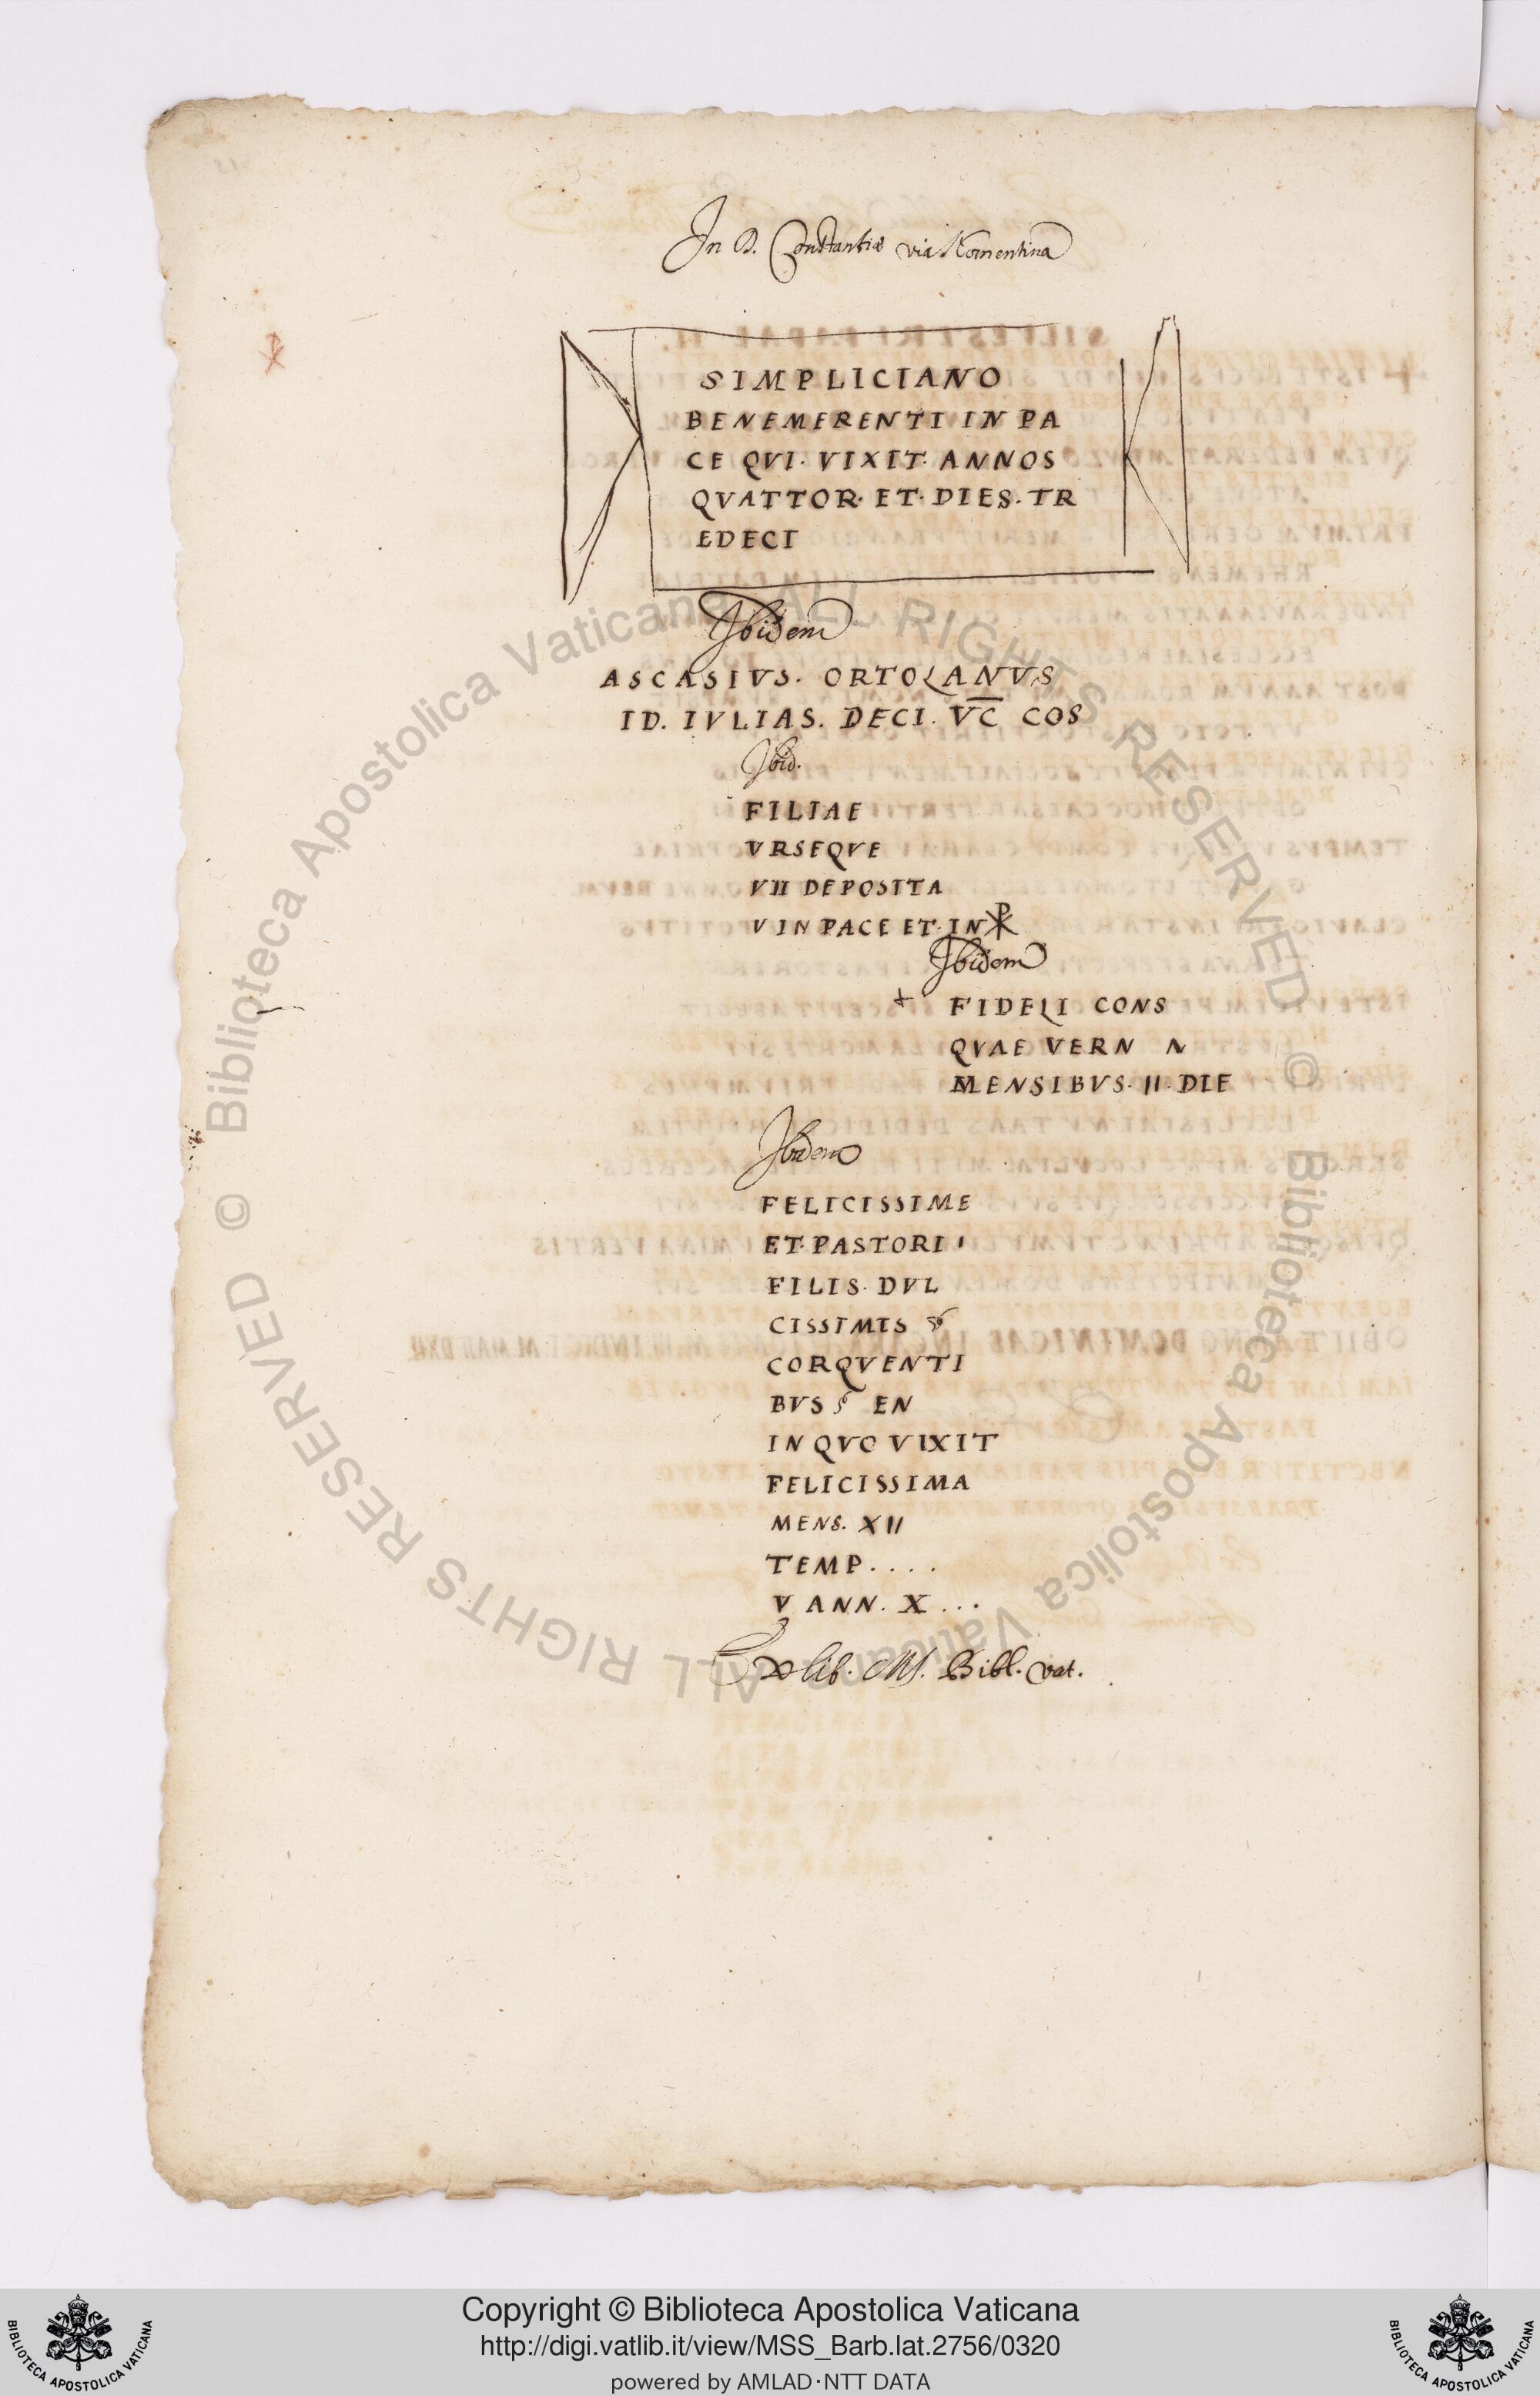 In D. Constantiæ via Nomentina
SIMPLICIANO
BENEMERENTI IN PA
CE QVI. VIXIT. ANNOS
QVATTOR. ET. DIES. TR
EDECI
Ibidem
ASCASIVS. ORTOLANVS
ID. IVLIAS. DECI. VC COS
Ibid.
FILIAE
VRSEQVE
VII DEPOSITA
V IN PACE ET. IN ☧
Ibidem
+ FIDELI CONS
QVAE VERN N
MENSIBVS. II. DIE
Ibidem
FELICISSIME
ET. PASTORI I
FILIS. DVL
CISSIMIS
CORQVENTI
BVS EN
IN QVO VIXIT
FELICISSIMA
MENS. XII
TEMP. . . .
V ANN. X . . .
Ex lib. MS. Bibl. vat.
© Biblioteca Apostolica Vaticana ALL RIGHTS RESERVED
© Biblioteca Apostolica Vaticana ALL RIGHTS RESERVED
Copyright © Biblioteca Apostolica Vaticana
http://digi.vatlib.it/view/MSS_Barb.lat.2756/0320
powered by AMLAD·NTT DATA
BIBLIOTECA APOSTOLICA VATICANA
BIBLIOTECA APOSTOLICA VATICANA